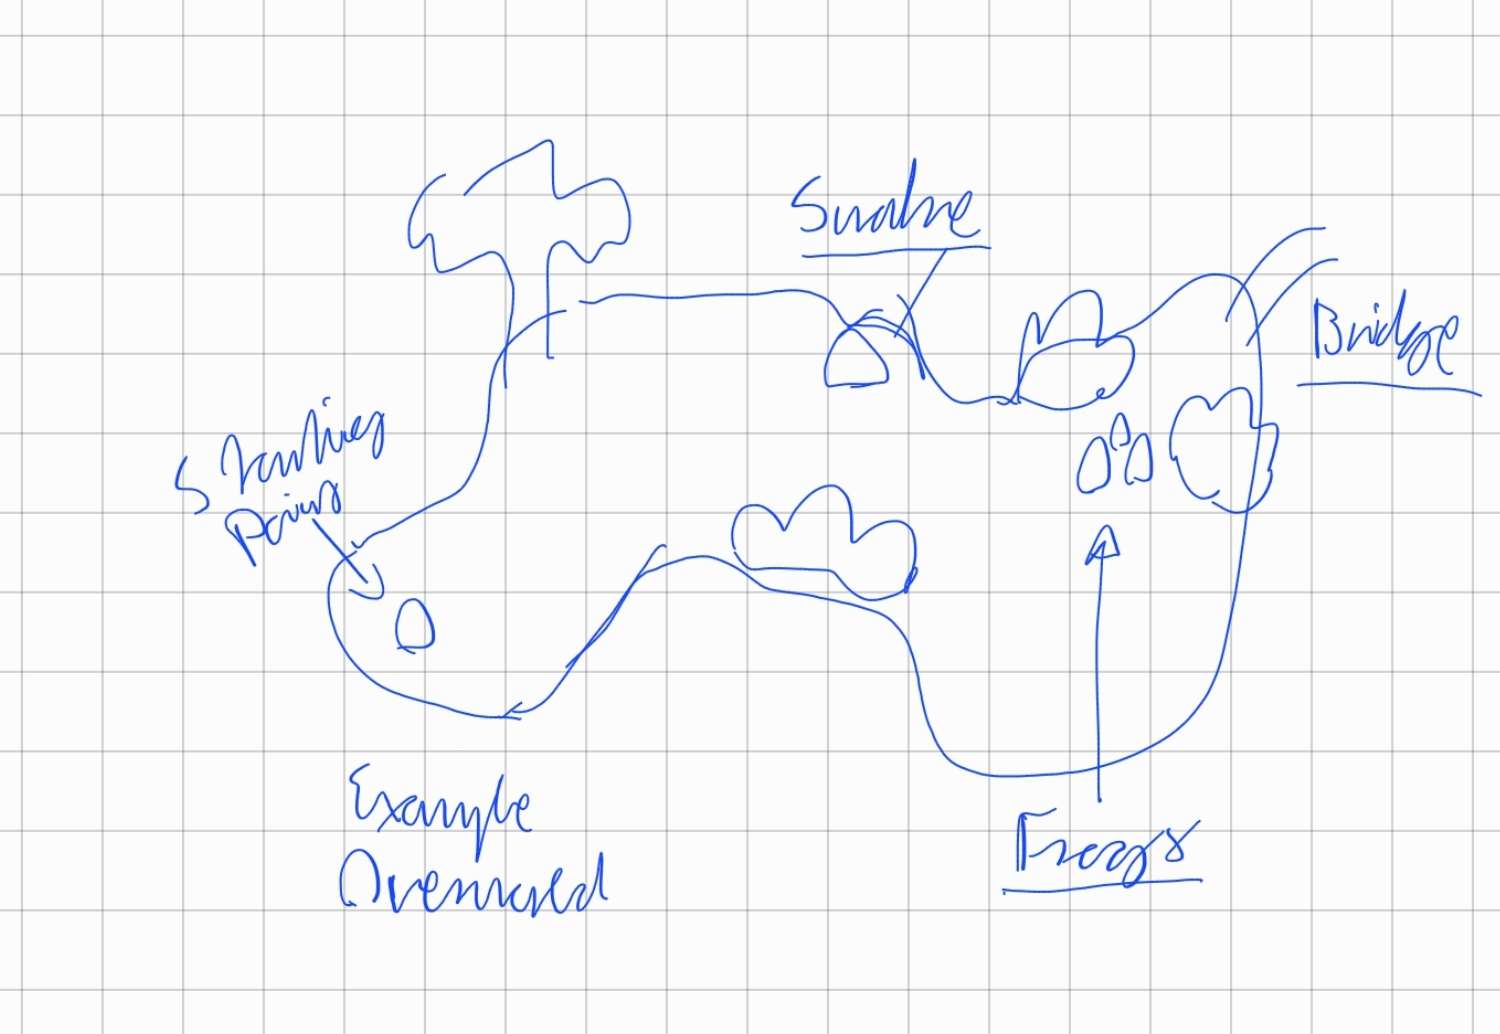 Bridge
Starting
Point
Example
Overworld
Frogs